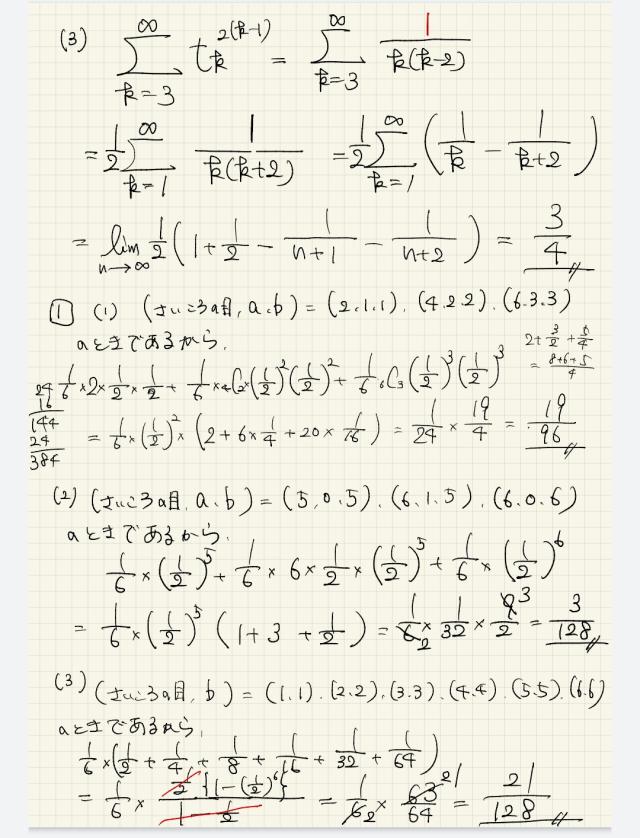 (3) ∞Σk=3 t_k^{2(k-1)} = ∞Σk=3 1/k(k-2)
= 1/2 ∞Σk=1 1/k(k+2) = 1/2 ∞Σk=1 (1/k - 1/k+2)
= lim n→∞ 1/2 (1 + 1/2 - 1/n+1 - 1/n+2) = 3/4
1 (1) (さいころの目, a, b) = (2,1,1), (4,2,2), (6,3,3)
のときであるから、
2 + 3/2 + 5/4
= 8+6+5/4
1/6 × 2 × 1/2 × 1/2 + 1/6 × 4C2 (1/2)^2 (1/2)^2 + 1/6 6C3 (1/2)^3 (1/2)^3
24
16
144
24
384
= 1/6 × (1/2)^2 × (2 + 6 × 1/4 + 20 × 1/16) = 1/24 × 19/4 = 19/96
(2) (さいころの目, a, b) = (5,0,5), (6,1,5), (6,0,6)
のときであるから、
1/6 × (1/2)^5 + 1/6 × 6 × 1/2 × (1/2)^5 + 1/6 × (1/2)^6
= 1/6 × (1/2)^5 (1 + 3 + 1/2) = 1/6 2 × 1/32 × 9/2 3 = 3/128
(3) (さいころの目, b) = (1,1), (2,2), (3,3), (4,4), (5,5), (6,6)
のときであるから、
1/6 × (1/2 + 1/4 + 1/8 + 1/16 + 1/32 + 1/64)
= 1/6 × 1/2 {1 - (1/2)^6} / 1 - 1/2 = 1/6 2 × 63/64 21 = 21/128